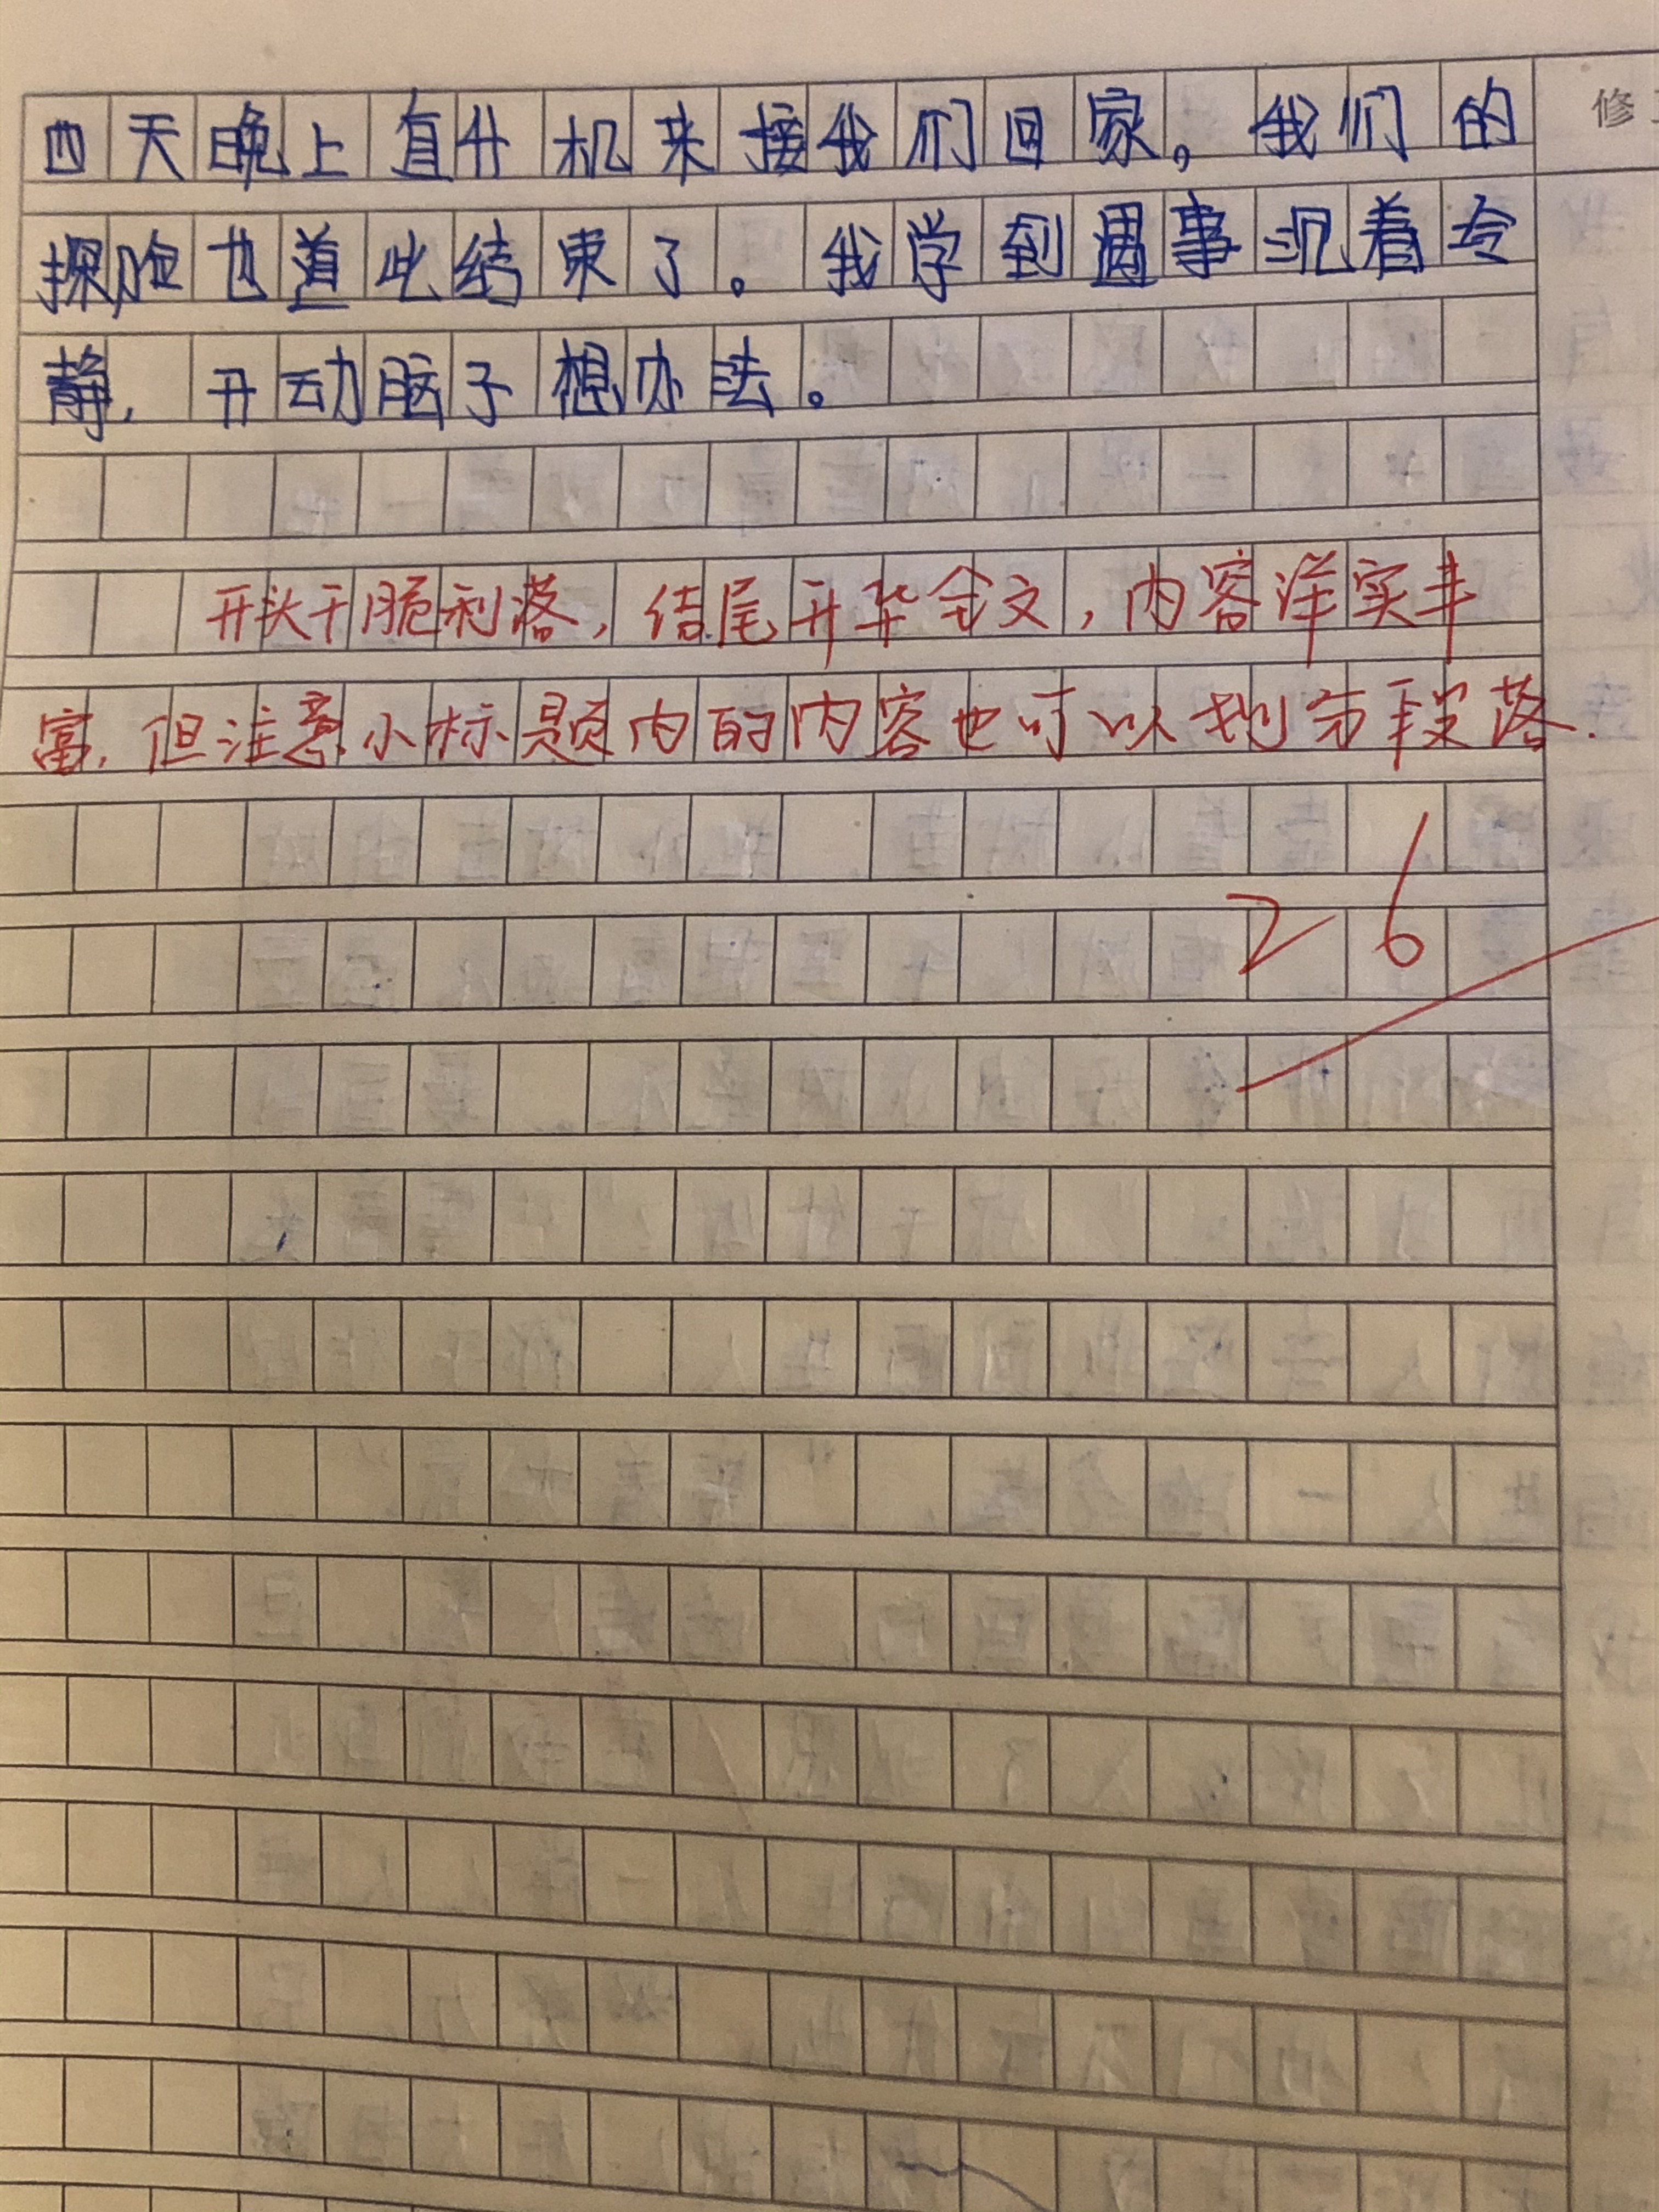 修
四天晚上直升机来接我们回家。我们的
探险也道此结束了。我学到遇事沉着冷
静，开动脑子想办法。
开头干脆利落，结尾升华全文，内容详实丰
富，但注意小标题内的内容也可以划分段落.
26